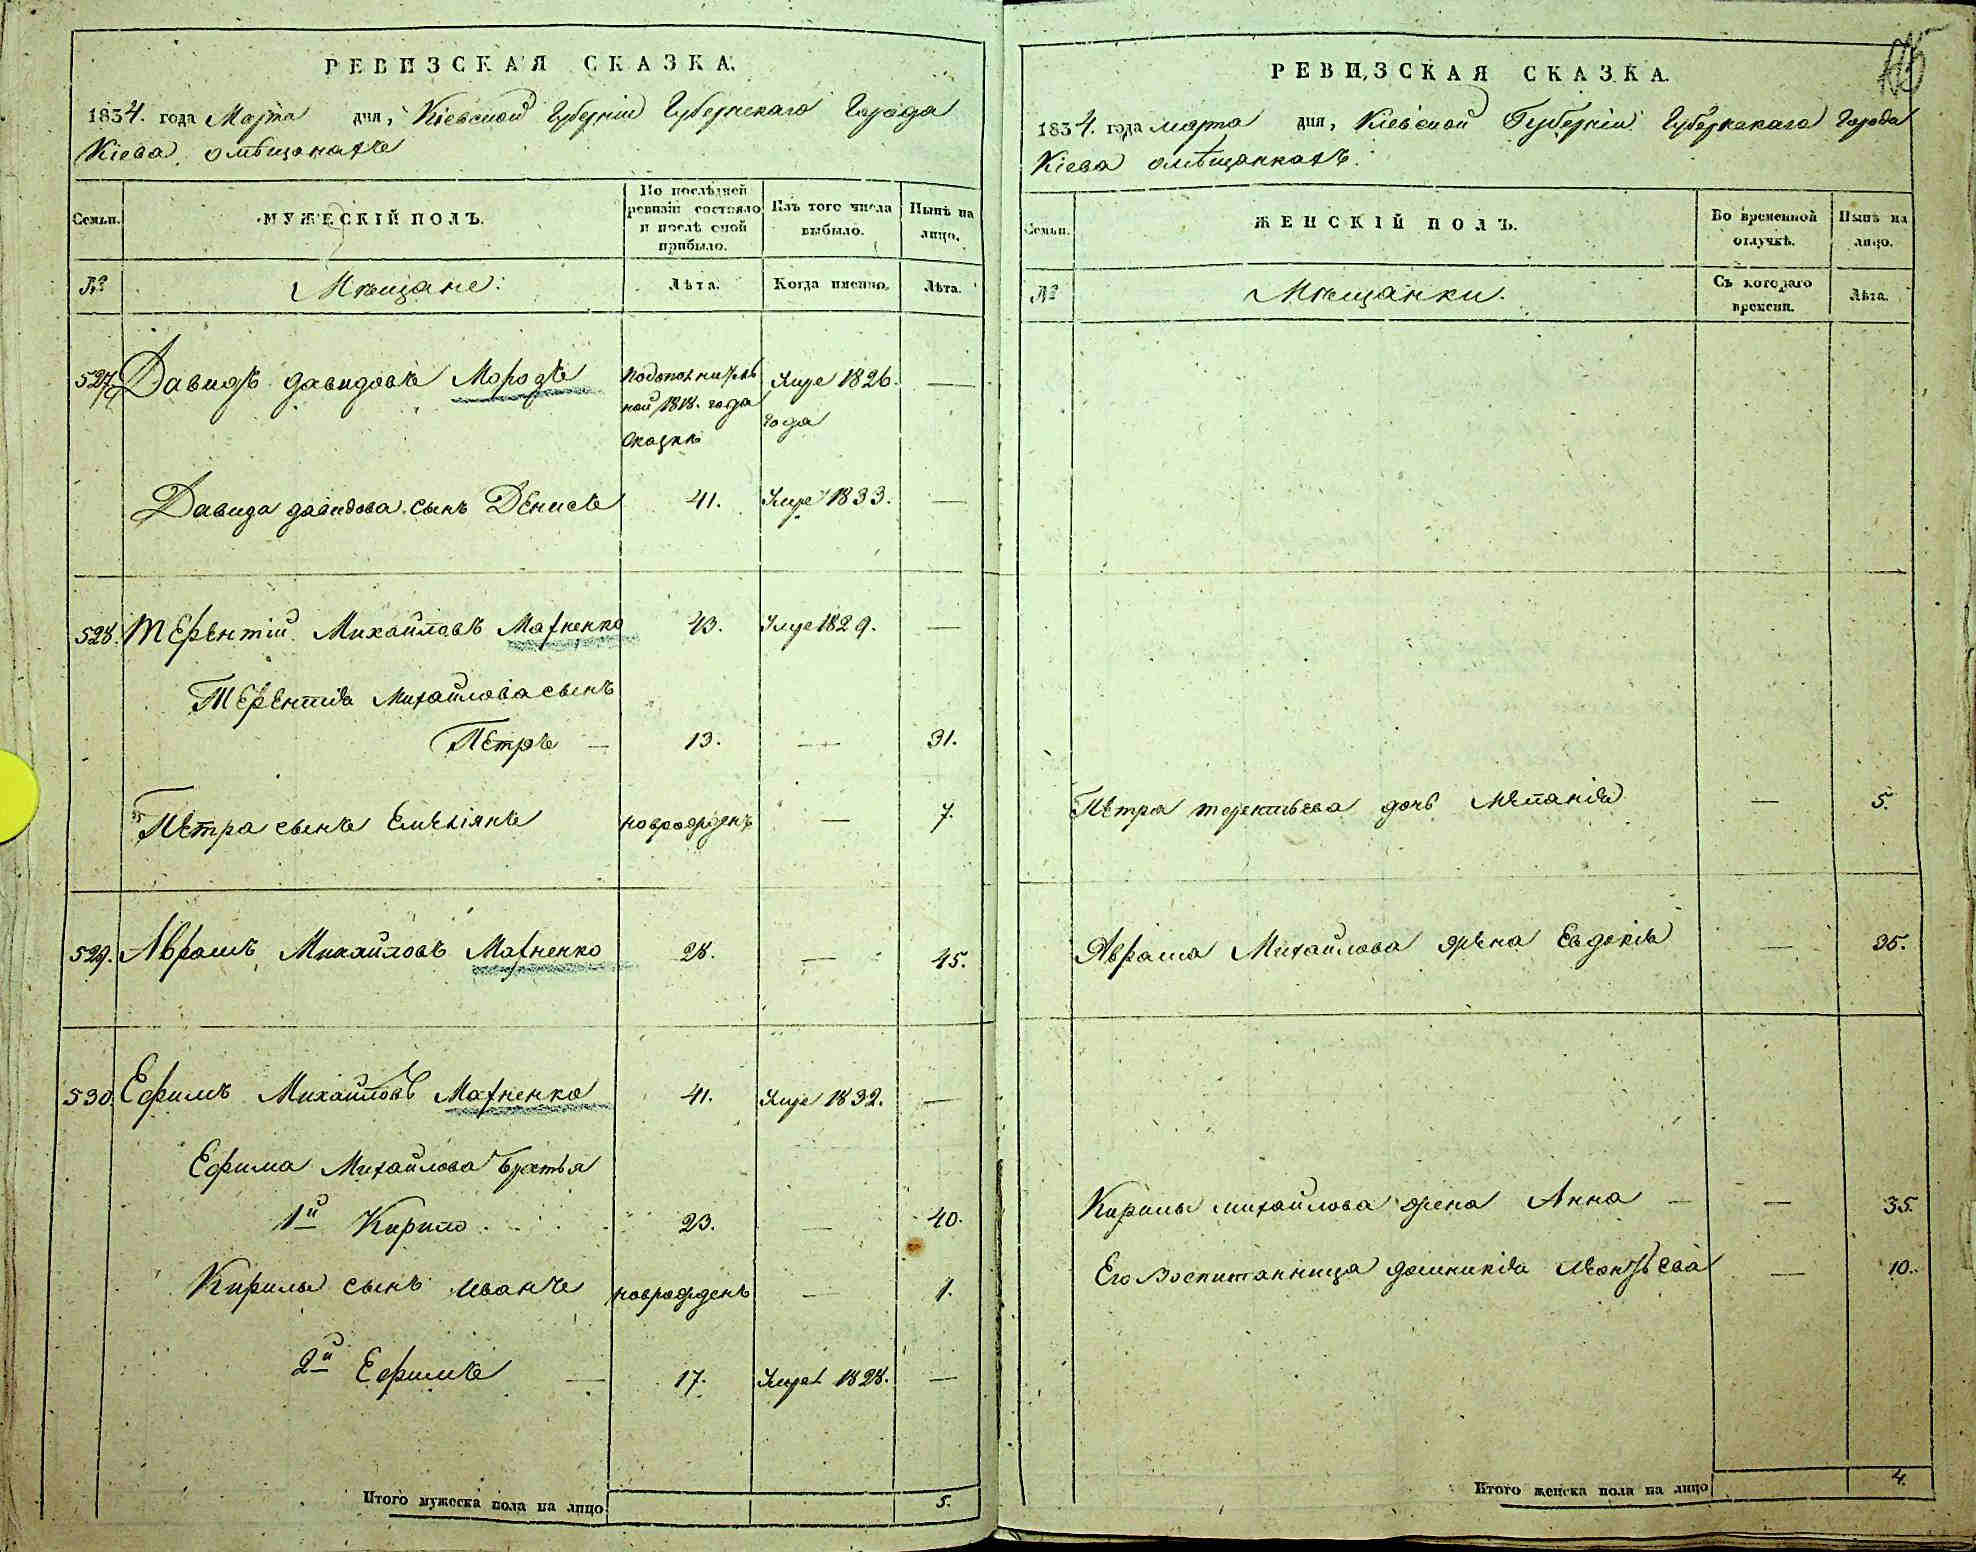 РЕВИЗСКАЯ СКАЗКА.
1834. года Марта дня, Кіевской Губерніи Губернскаго Города
Кіева омѣщанахъ
Семьи.
МУЖЕСКІЙ ПОЛЪ.
По послѣдней ревизіи состояло и послѣ оной прибыло.
Изъ того числа выбыло.
Нынѣ на лицо.
№
Мѣщане.
Лѣта.
Когда именно.
Лѣта.
527 Давидъ давидовъ Морозъ подополнительной 1818. года Сказкѣ Умре 1826. года —
Давида давидова сынъ Денисъ 41. Умре 1833. —
528. Терентій Михайловъ Махненко 43. Умре 1829. —
Терентія Михайлова сынъ
Петръ — 13. — 31.
Петра сынъ Емеліянъ новрожденъ — 7.
529. Аврамъ Михайловъ Махненко 28. — 45.
530. Ефимъ Михайловъ Махненко 41. Умре 1832. —
Ефима Михайлова братья
1й Кирило 23. — 40.
Кирилы сынъ иванъ новрожденъ — 1.
2й Ефимъ — 17. Умре 1828. —
Итого мужеска пола на лицо 5.
РЕВИЗСКАЯ СКАЗКА.
1834. года марта дня, Кіевской Губерніи Губернскаго Города
Кіева омѣщанкахъ.
Семьи.
ЖЕНСКІЙ ПОЛЪ.
Во временной отлучкѣ.
Нынѣ на лицо.
№
Мѣщанки.
Съ котораго времени.
Лѣта.
Петра терентьева дочь Меланія — 5.
Аврама Михайлова жена Евдокія — 35.
Кирилы михайлова жена Анна — — 35.
Его Воспитанница домникія — 10.
Итого женска пола на лицо 4.